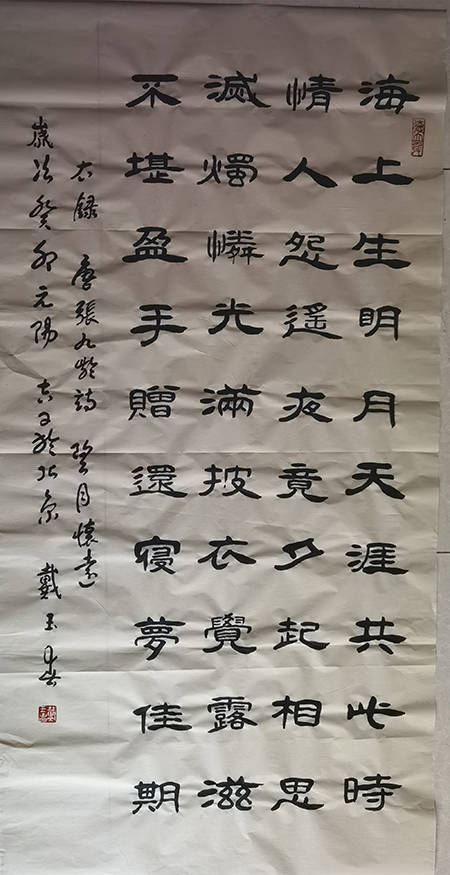 海上生明月天涯共此時
情人怨遥夜竟夕起相思
滅燭憐光滿披衣覺露滋
不堪盈手贈還寝夢佳期
右録 唐張九齡詩 望月懷遠
歲次癸卯元陽 吉日於北京 戴玉